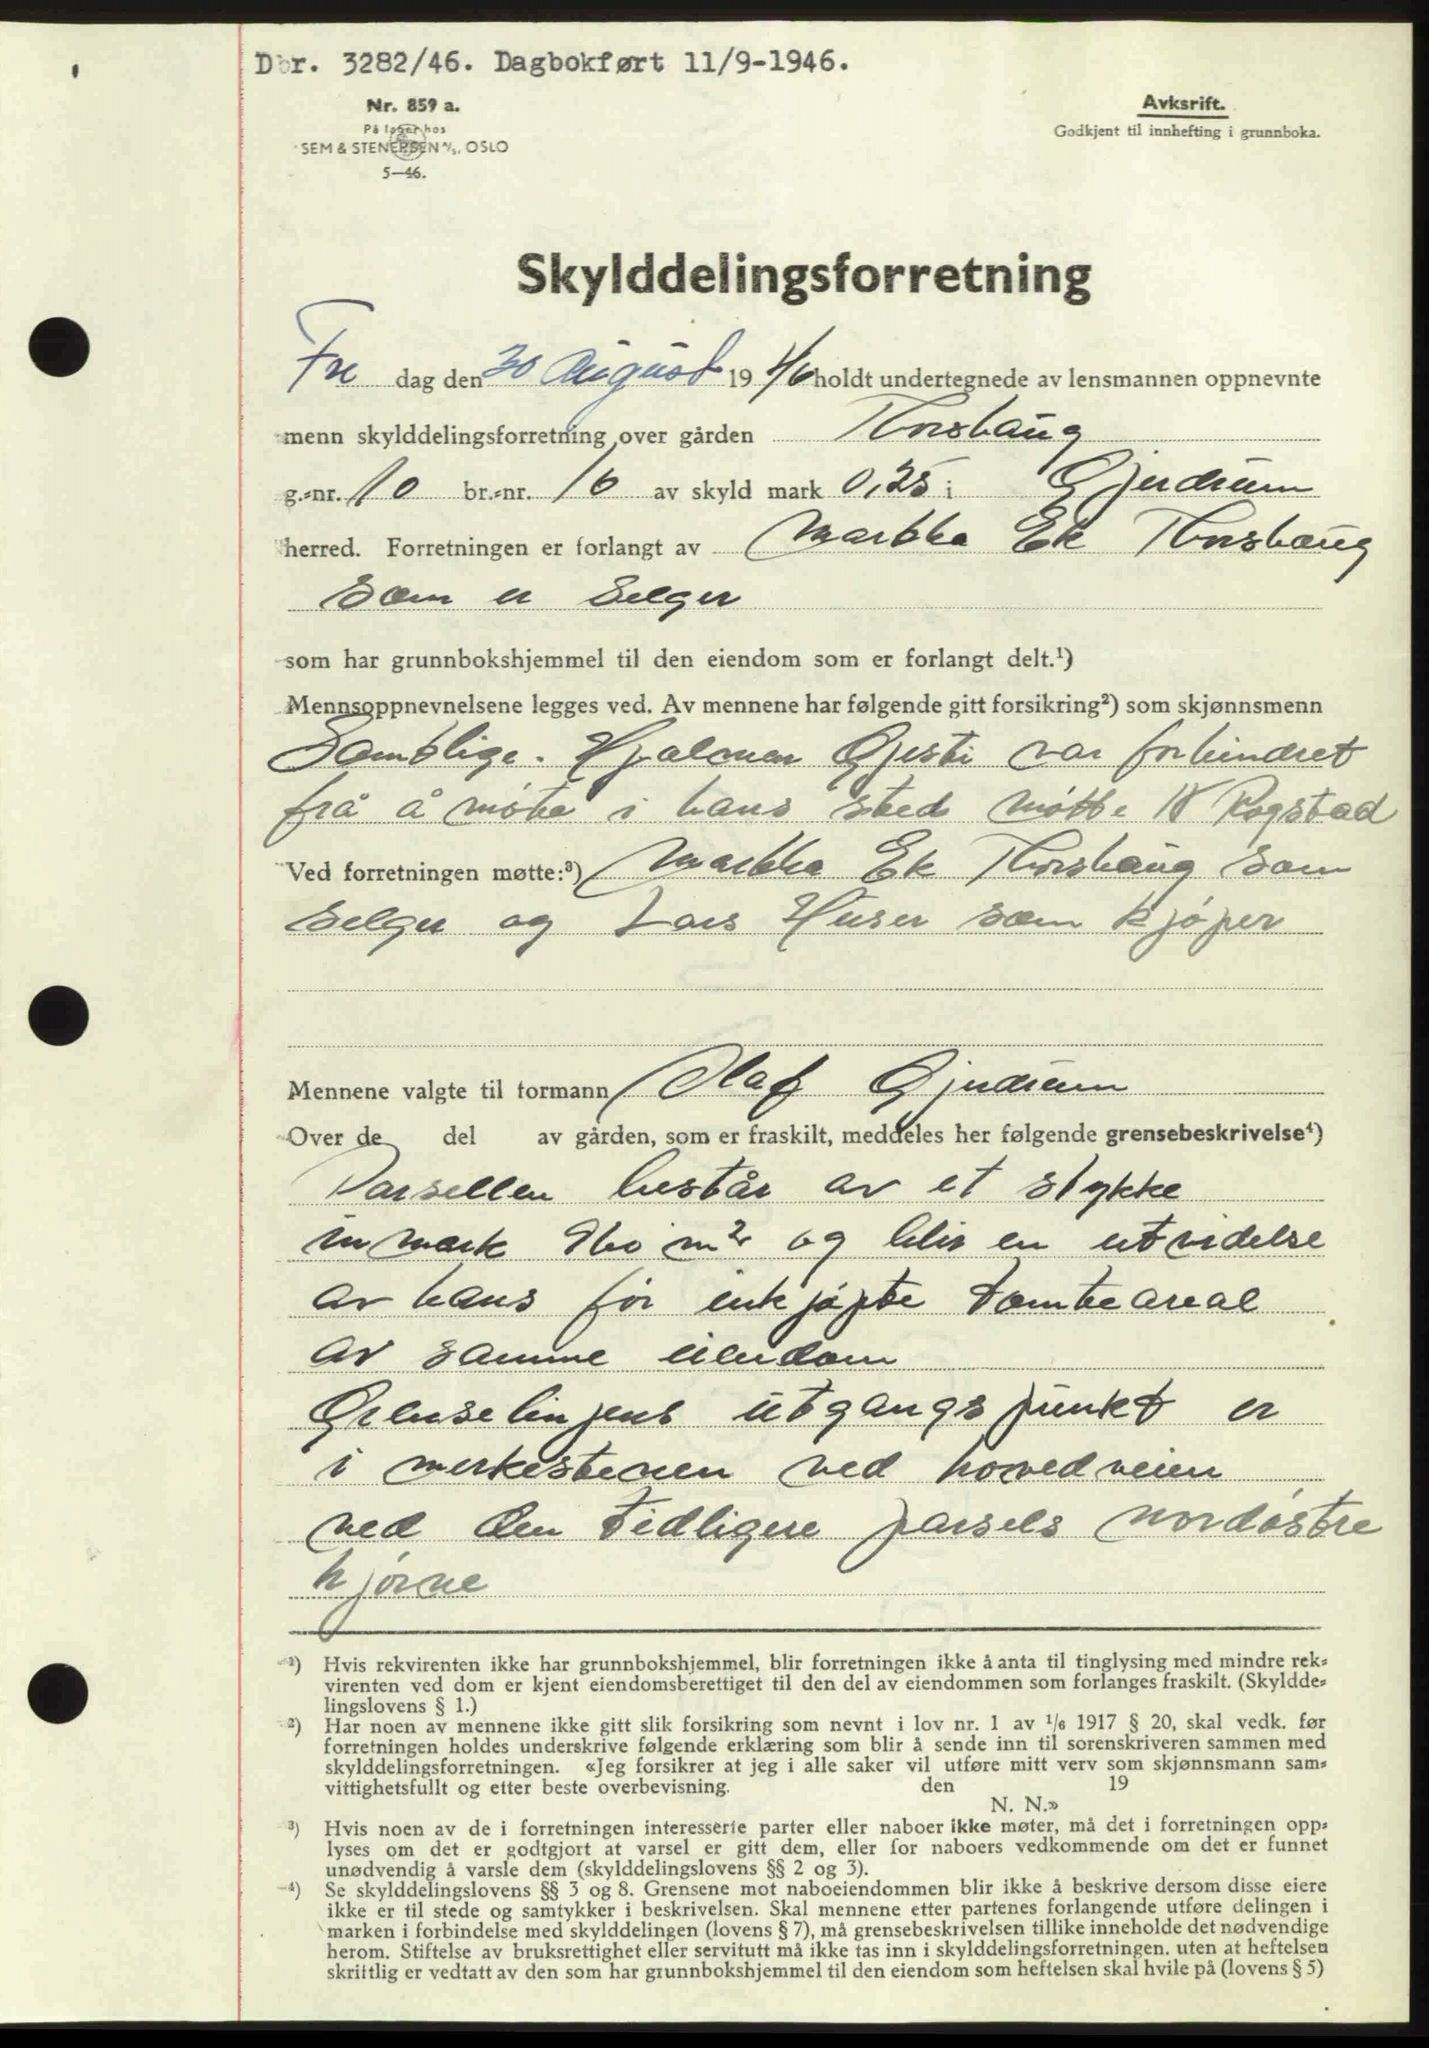 Dbr. 3282/46. Dagbokført 11/9-1946.
Nr. 859 a.
På lager hos
SEM & STENERSEN A/S, OSLO
5—46.
Avksrift.
Godkjent til innhefting i grunnboka.
Skylddelingsforretning
Fre dag den 30 August 19 46 holdt undertegnede av lensmannen oppnevnte
menn skylddelingsforretning over gården Thorshaug
g.-nr. 10 br.-nr. 16 av skyld mark 0,25 i Gjerdrum
herred. Forretningen er forlangt av Martha Ek Thorshaug
som er selger
som har grunnbokshjemmel til den eiendom som er forlangt delt.¹)
Mennsoppnevnelsene legges ved. Av mennene har følgende gitt forsikring²) som skjønnsmenn
Samtlige. Hjalmar Gjesti var forhindret
frå å møte i hans sted møtte Rogstad
Ved forretningen møtte:³) Martha Ek Thorshaug som
selger og Lars Huser som kjøper
Mennene valgte til formann Olaf Gjerdrum
Over de del av gården, som er fraskilt, meddeles her følgende grensebeskrivelse⁴)
Parsellen består av et stykke
inmark 960 m² og blir en utvidelse
av hans før inkjøpte tomteareal
av samme eiendom
Grenselinjens utgangspunkt er
i merkestenen ved hovedveien
ved den tidligere parsels nordøstre
hjørne
¹) Hvis rekvirenten ikke har grunnbokshjemmel, blir forretningen ikke å anta til tinglysing med mindre rek-
virenten ved dom er kjent eiendomsberettiget til den del av eiendommen som forlanges fraskilt. (Skyldde-
lingslovens § 1.)
²) Har noen av mennene ikke gitt slik forsikring som nevnt i lov nr. 1 av 1/6 1917 § 20, skal vedk. før
forretningen holdes underskrive følgende erklæring som blir å sende inn til sorenskriveren sammen med
skylddelingsforretningen. «Jeg forsikrer at jeg i alle saker vil utføre mitt verv som skjønnsmann sam-
vittighetsfullt og etter beste overbevisning. den 19
N. N.»
³) Hvis noen av de i forretningen interesserte parter eller naboer ikke møter, må det i forretningen opp-
lyses om det er godtgjort at varsel er gitt dem, eller for naboers vedkommende om det er funnet
unødvendig å varsle dem (skylddelingslovens §§ 2 og 3).
⁴) Se skylddelingslovens §§ 3 og 8. Grensene mot naboeiendommen blir ikke å beskrive dersom disse eiere
ikke er til stede og samtykker i beskrivelsen. Skal mennene etter partenes forlangende utføre delingen i
marken i forbindelse med skylddelingen (lovens § 7), må grensebeskrivelsen tillike inneholde det nødvendige
herom. Stiftelse av bruksrettighet eller servitutt må ikke tas inn i skylddelingsforretningen. uten at heftelsen
skriftlig er vedtatt av den som har grunnbokshjemmel til den eiendom som heftelsen skal hvile på (lovens § 5)